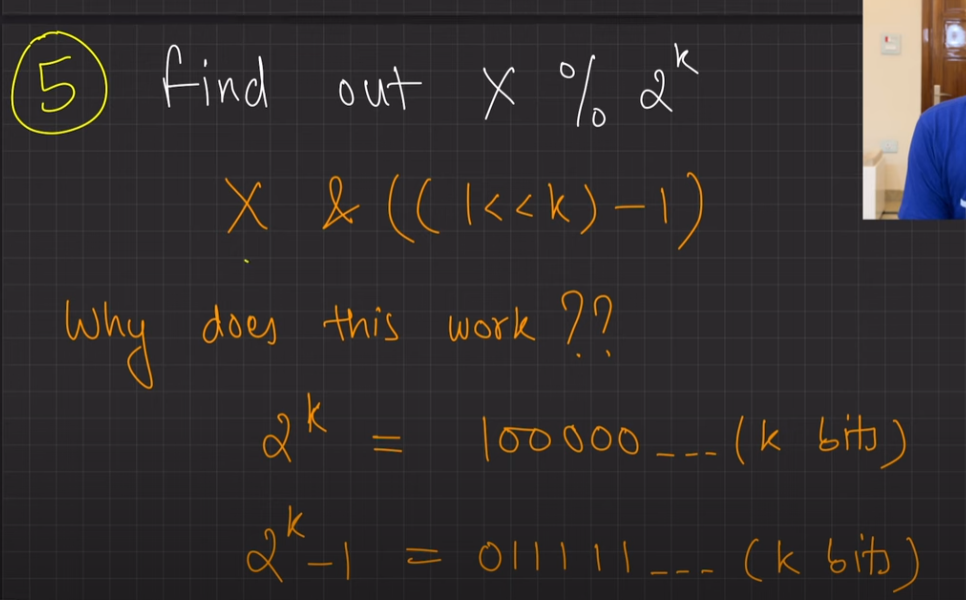 5 find out X % 2^k
X & ((1<<k)-1)
Why does this work ??
2^k = 100000 --- (k bits)
2^k-1 = 011111 --- (k bits)